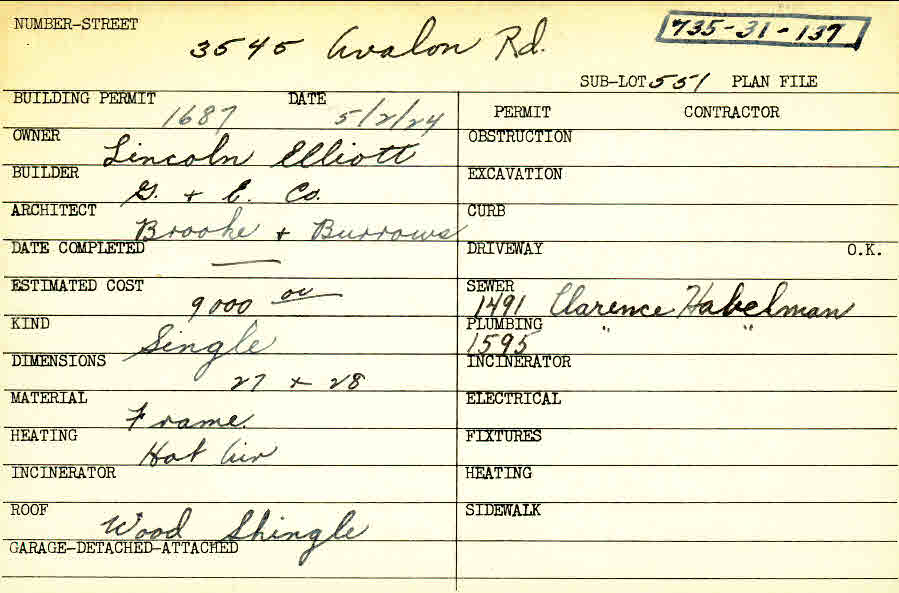 NUMBER-STREET
3545 Avalon Rd.
735-31-137
SUB-LOT 551 PLAN FILE
BUILDING PERMIT 1687 DATE 5/2/24
OWNER Lincoln Elliott
BUILDER G. + E. Co.
ARCHITECT Brooke + Burrows
DATE COMPLETED —
ESTIMATED COST 9000 00
KIND Single
DIMENSIONS 27 x 28
MATERIAL Frame.
HEATING Hot Air
INCINERATOR
ROOF Wood Shingle
GARAGE-DETACHED-ATTACHED
PERMIT CONTRACTOR
OBSTRUCTION
EXCAVATION
CURB
DRIVEWAY O.K.
SEWER
1491 Clarence Habelman
PLUMBING " "
1595
INCINERATOR
ELECTRICAL
FIXTURES
HEATING
SIDEWALK